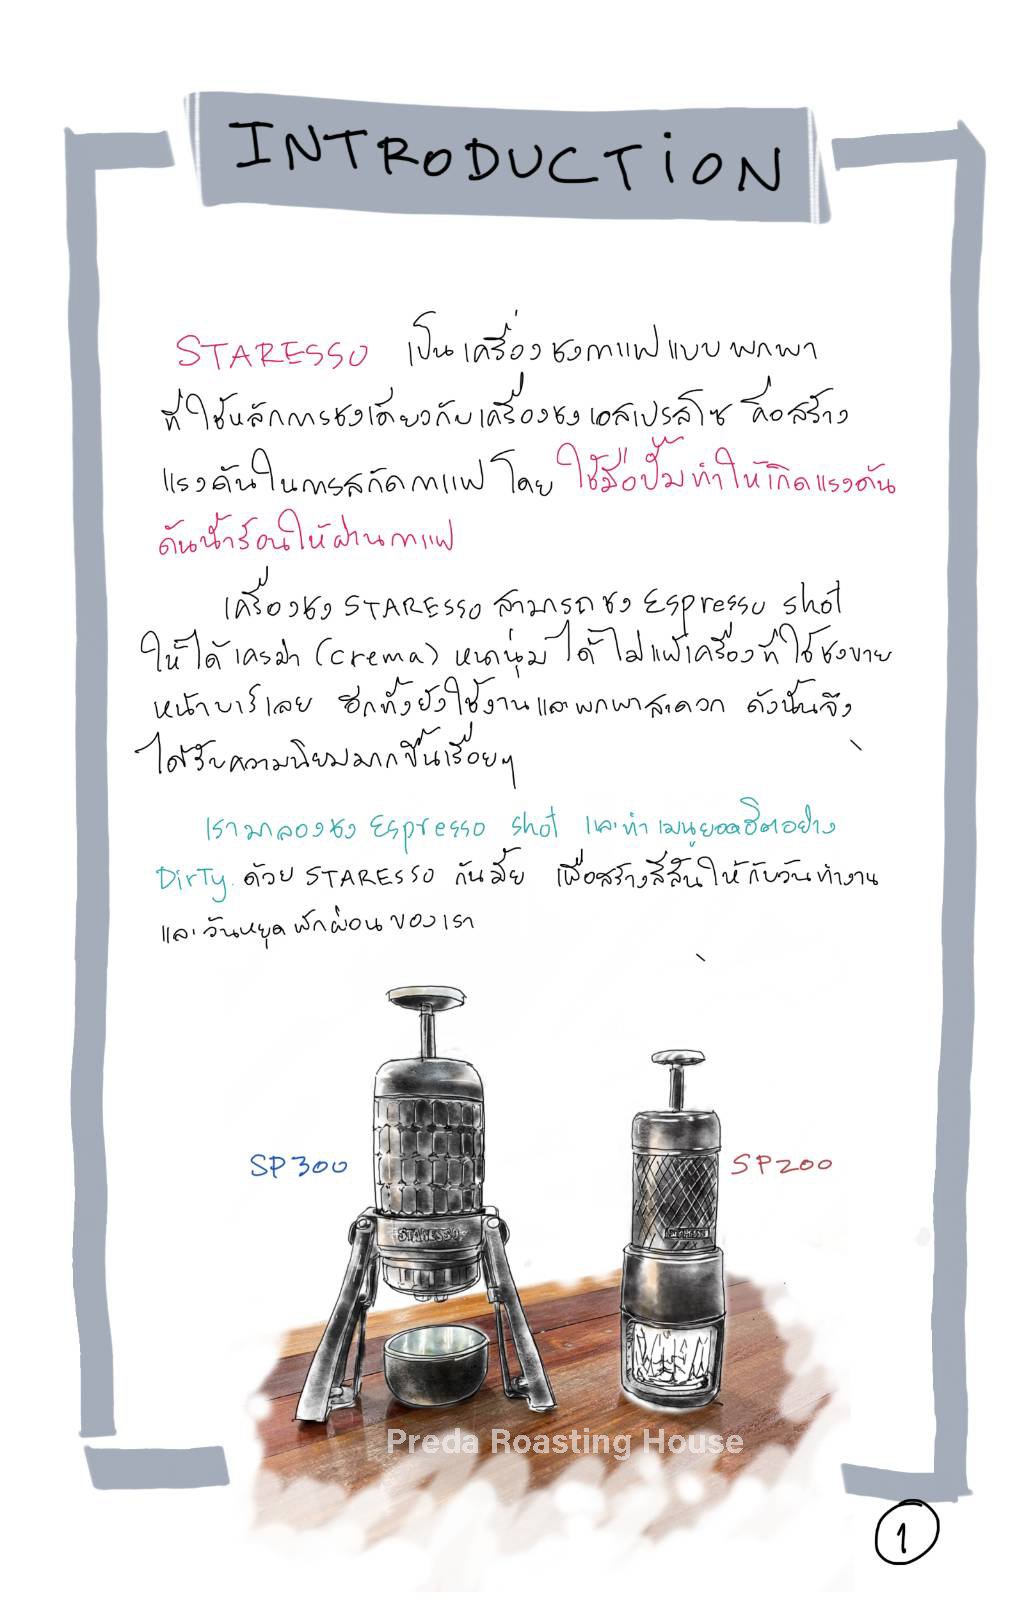 INTRODUCTION
STARESSO เป็นเครื่องชงกาแฟแบบพกพา
ที่ใช้หลักการชงเดียวกับเครื่องชงเอสเปรสโซ คือสร้าง
แรงดันในการสกัดกาแฟ โดย ใช้มือปั๊มทำให้เกิดแรงดัน
ดันน้ำร้อนให้ผ่านกาแฟ
เครื่องชง STARESSO สามารถชง Espresso shot
ให้ได้เครม่า (crema) หนานุ่มได้ ไม่แพ้เครื่องที่ใช้ชงขาย
หน้าบาร์เลย อีกทั้งยังใช้งานและพกพาสะดวก ดังนั้นจึง
ได้รับความนิยมมากขึ้นเรื่อยๆ
เรามาลองชง Espresso shot และทำเมนูยอดฮิตอย่าง
Dirty ด้วย STARESSO กันมั้ย เพื่อสร้างสีสันให้กับวันทำงาน
และวันหยุดพักผ่อนของเรา
SP300
SP200
STARESSO
STARESSO
Preda Roasting House
1